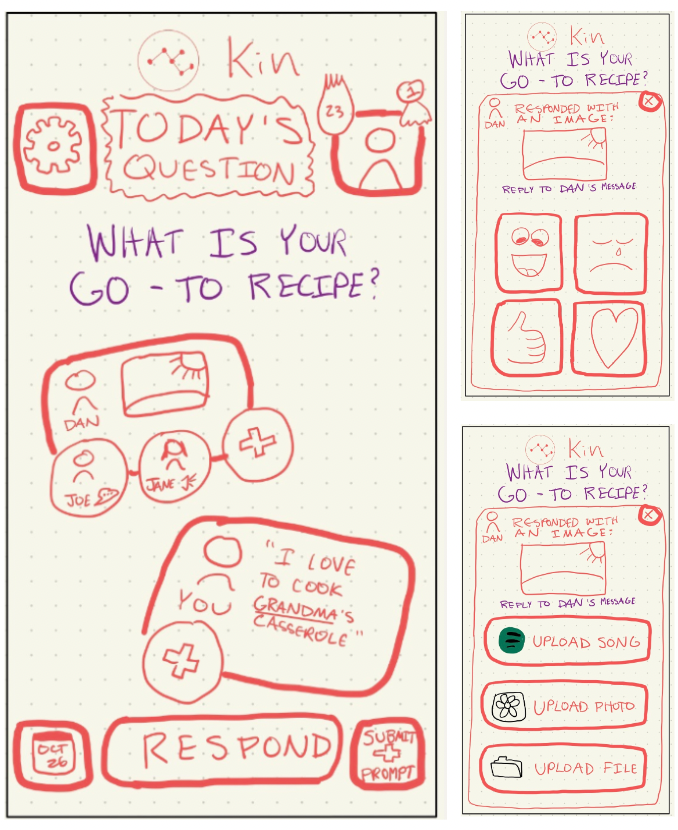 Kin
TODAY'S
QUESTION
23
1
WHAT IS YOUR
GO - TO RECIPE?
DAN
JOE
JANE
YOU
"I LOVE
TO COOK
GRANDMA'S
CASSEROLE"
OCT
26
RESPOND
SUBMIT
PROMPT
Kin
WHAT IS YOUR
GO - TO RECIPE?
DAN
RESPONDED WITH
AN IMAGE:
REPLY TO DAN'S MESSAGE
Kin
WHAT IS YOUR
GO - TO RECIPE?
DAN
RESPONDED WITH
AN IMAGE:
REPLY TO DAN'S MESSAGE
UPLOAD SONG
UPLOAD PHOTO
UPLOAD FILE